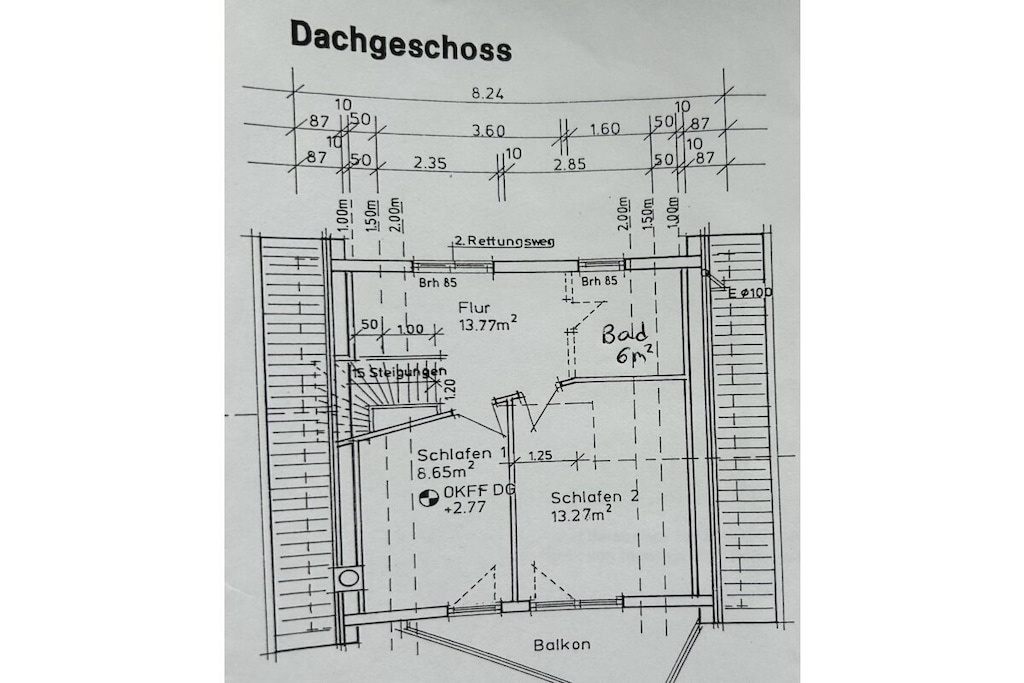 Dachgeschoss
8.24
10
10
87
50
3.60
1.60
50
87
10
10
87
50
2.35
10
2.85
50
87
1.00m
1.50m
2.00m
2.00m
1.50m
1.00m
2.Rettungsweg
Brh 85
Brh 85
E ø100
Flur
13.77m²
Bad
6m²
50
1.00
15 Steigungen
1.20
Schlafen 1
8.65m²
1.25
OKFF DG
+2.77
Schlafen 2
13.27m²
Balkon